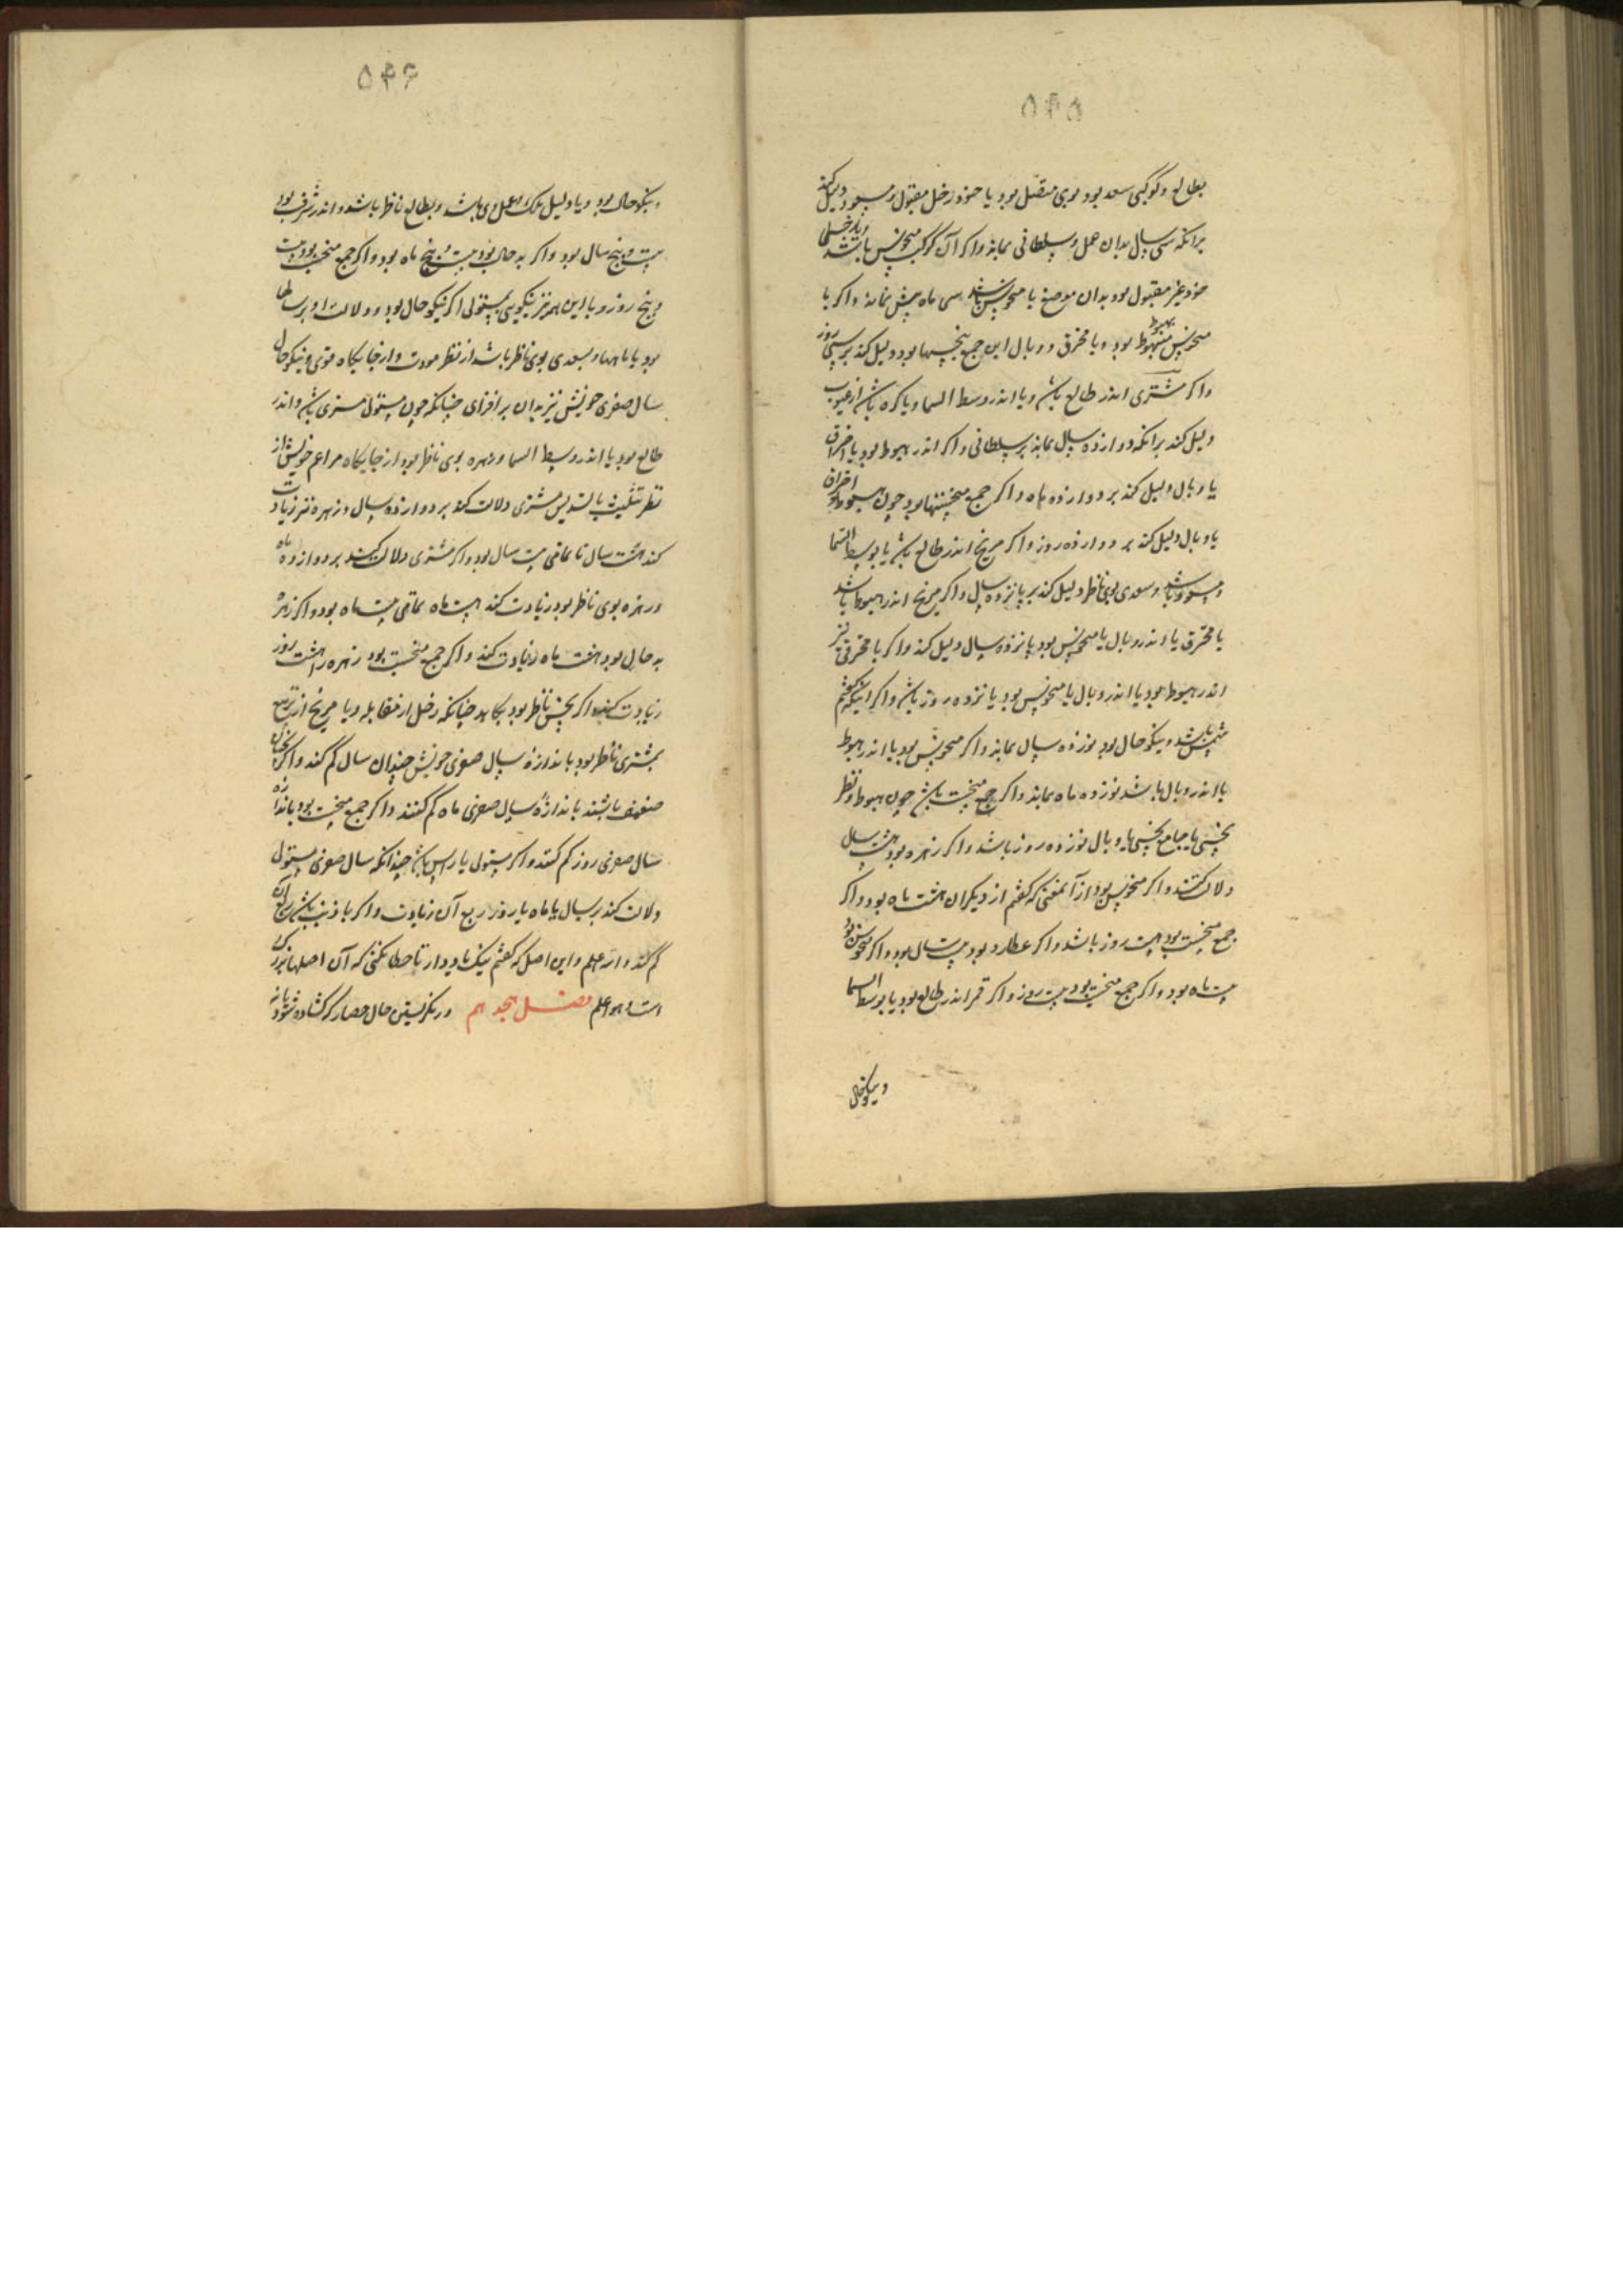 ۵۴۵
بطالع و کوکبی سعد بود بوی متصل بود یا خود زحل مقبول و مسعود دلیل کند
برانکه سی سال بدان عمل و سلطانی بماند و اکر آن کوکب منحوس باشد و یا زحل
خود غیر مقبول بود بدان موضع یا منحوس باشد سی ماه بیش نماند و اکر با
منحوس بهبوط بود و یا محترق و وبال این جمع نحسیها بود دلیل کند بر سی روز
و اکر مشتری اندر طالع باشد و یا اندر وسط السما و پاکیزه باشد از عیوب
دلیل کند برانکه دوازده سال بماند بر سلطانی و اکر اندر هبوط بود یا احتراق
یا وبال دلیل کند بر دوازده ماه و اکر جمع منحستها بود چون هبوط و احتراق
یا وبال دلیل کند بر دوازده روز و اکر مریخ اندر طالع باشد یا بوسط السما
و مسعود باشد و سعدی بوی ناظر دلیل کند بر پانزده سال و اکر مریخ اندر هبوط باشد
یا محترق یا اندر وبال یا منحوس بود پانزده سال دلیل کند و اکر با محترقی نیز
اندر هبوط بود یا اندر وبال یا منحوس بود پانزده روز باشد و اکر اینکه کفتم
شمس باشد و نیکو حال بود نوزده سال بماند و اکر منحوس بود یا اندر هبوط
یا اندر وبال باشد نوزده ماه بماند و اکر جمع منحست باشد چون هبوط و نظر
نحسی یا جماع نحسی یا وبال نوزده روز باشد و اکر زهره بود هشت سال
دلالت کند و اکر منحوس بود از آنمعنی که کفتم از دیکران هشت ماه بود و اکر
جمع منحست بود هشت روز باشد و اکر عطارد بود بیست سال بود و اکر منحوس بود
بیست ماه بود و اکر جمع منحست بود بیست روز و اکر قمر اندر طالع بود یا بوسط السما
و نیکو حال
۵۴۶
و نیکو حال بود و یا دلیل ملک و عمل وی باشد و بطالع ناظر باشد و اندر شرف بود
بیست و پنج سال بود و اکر بد حال بود بیست و پنج ماه بود و اکر جمع منحست بود بیست
و پنج روز و با این همه نیز نیکویی مستولی اکر نیکو حال بود و دلالت او بر سالها
بود یا ماهها و سعدی بوی ناظر باشد از نظر مودت و از جایکاه قوی و نیکو حال
سال صغری خویش نیز بدان بر افزای چنانکه چون مستولی مشتری باشد و اندر
طالع بود یا اندر وسط السما و زهره بوی ناظر بود از جایکاه مزاعم خویش از
نظر تثلیث یا تسدیس مشتری دلالت کند بر دوازده سال و زهره نیز زیادت
کند هشت سال تا تمامی بیست سال بود و اکر مشتری دلالت کند بر دوازده ماه
و زهره بوی ناظر بود زیادت کند هشت ماه تمامی بیست ماه بود و اکر زهره
بد حال بود هشت ماه زیادت کند و اکر جمع منحست بود زهره را هشت روز
زیادت کند و اکر نحس ناظر بود بکاهد چنانکه زحل از مقابله و یا مریخ از تربیع
بمشتری ناظر بود باندازه سال صغری خویش چندان سال کم کند و اکر نحسان
ضعیف باشند باندازه سال صغری ماه کم کنند و اکر جمع منحست بود باندازه
سال صغری روز کم کنند و اکر مستولی با راس باشد چندانکه سال صغری مستولی
دلالت کند بر سال یا ماه یا روز ربع آن زیادت و اکر با ذنب باشد ربع آن
کم کند والله اعلم و این اصل که کفتم نیک یاد دار تا خطا نکنی که آن اصلها بزرک
است و هو اعلم فصل هجدهم در نکریستن حال حصار که کشاده شود یا نه